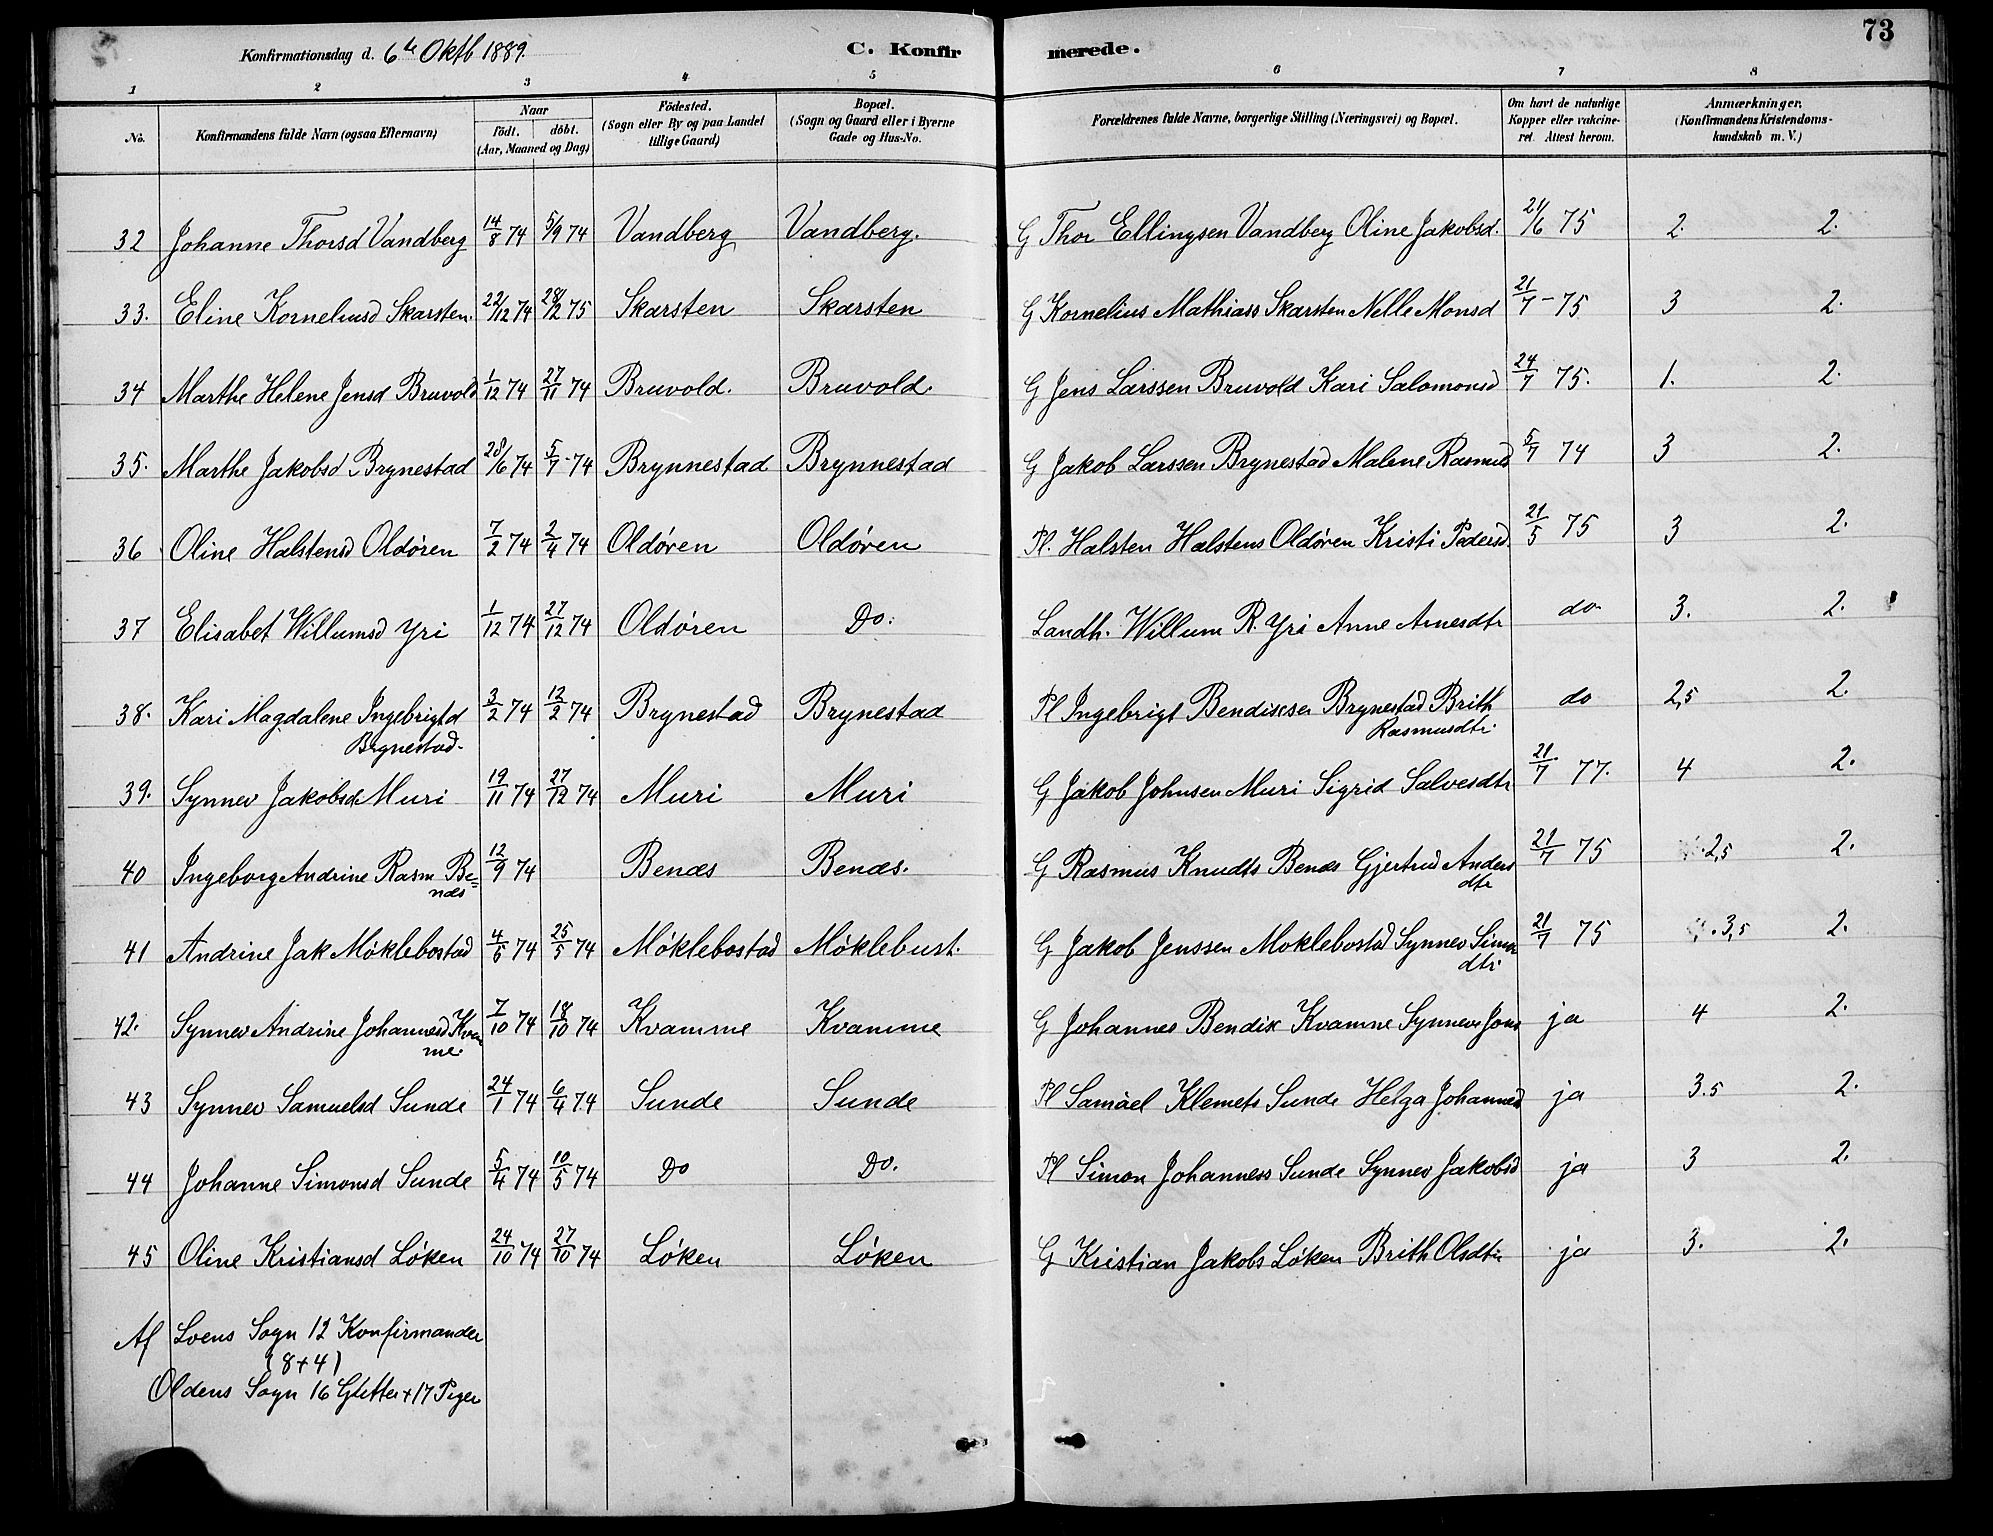 73
Konfirmationsdag d. 6te Oktb 1889.
C. Konfirmerede.
1 2 3 4 5 6 7 8
No. Konfirmandens fulde Navn (ogsaa Efternavn) Naar födt. döbt. (Aar, Maaned og Dag) Födested. (Sogn eller By og paa Landet tillige Gaard) Bopæl. (Sogn og Gaard eller i Byerne Gade og Hus-No. Forældrenes fulde Navne, borgerlige Stilling (Næringsvei) og Bopæl. Om havt de naturlige Kopper eller vakcineret. Attest herom. Anmærkninger. (Konfirmandens Kristendomskundskab m. V.)
32 Johanne Thorsd Vandberg 14/8 74 5/9 74 Vandberg Vandberg. G Thor Ellingsen Vandberg Oline Jakobsd. 21/6 75 2. 2.
33. Eline Korneliusd Skarsten. 22/12 74 28/2 75 Skarsten Skarsten G Kornelius Mathiass Skarsten Nelle Monsd 21/7 - 75 3 2.
34 Marthe Helene Jensd Bruvold 1/12 74 27/11 74 Bruvold. Bruvold. G Jens Larssen Bruvold Kari Salomonsd 24/7 75. 1. 2.
35. Marthe Jakobsd Brynestad 28/6 74 5/7 - 74 Brynnestad Brynnestad G Jakob Larssen Brynestad Malene Rasmusd 5/7 74 3 2.
36 Oline Halstensd Oldøren 7/2 74 2/4 74 Oldøren Oldøren Pl. Halsten Halstens Oldøren Kristi Pedersd. 21/5 75 3 2.
37 Elisabet Willumsd Yri 1/12 74 27/12 74 Oldøren Do. Landh. Willum R. Yri Anne Arnesdtr do 3. 2.
38. Kari Magdalene Ingebrigtd 3/2 74 12/2 74 Brynestad Brynestad Pl Ingebrigt Bendixsen Brynestad Brith do 2,5 2.
Brynestad. Rasmusdtr.
39. Synnev Jakobsd Muri 19/11 74 27/12 74 Muri Muri G Jakob Johnsen Muri Sigrid Salvesdtr 21/7 77. 4 2.
40 Ingeborg Andrine Rasm Be= 12/9 74 Benæs Benæs. G Rasmus Knudts Benæs Gjertrud Anders 21/7 75 2,5 2.
næs dtr
41 Andrine Jak Møklebostad 4/5 74 25/5 74 Møklebostad Møklebust. G Jakob Jenssen Moklebostad Synnev Simon 21/7 75 3,5 2.
dtr
42. Synnev Andrine Johannesd Kvam 7/10 74 18/10 74 Kvamme Kvamme G Johannes Bendix Kvamne Synnev Jons ja 4 2.
me.
43 Synnev Samuelsd Sunde 24/1 74 6/4 74 Sunde Sunde Pl Samuel Klemets Sunde Helga Johannesd ja 3.5 2.
44 Johanne Simonsd Sunde 5/4 74 10/5 74 Do Do. Pl Simon Johanness Sunde Synnev Jakobsd ja 3 2.
45 Oline Kristiansd Løken 24/10 74 27/10 74 Løken Løken G Kristian Jakobs Løken Brith Olsdtr ja 3. 2.
Af Loens Sogn 12 Konfirmander
(8+4)
Oldens Sogn 16 Gutter + 17 Piger